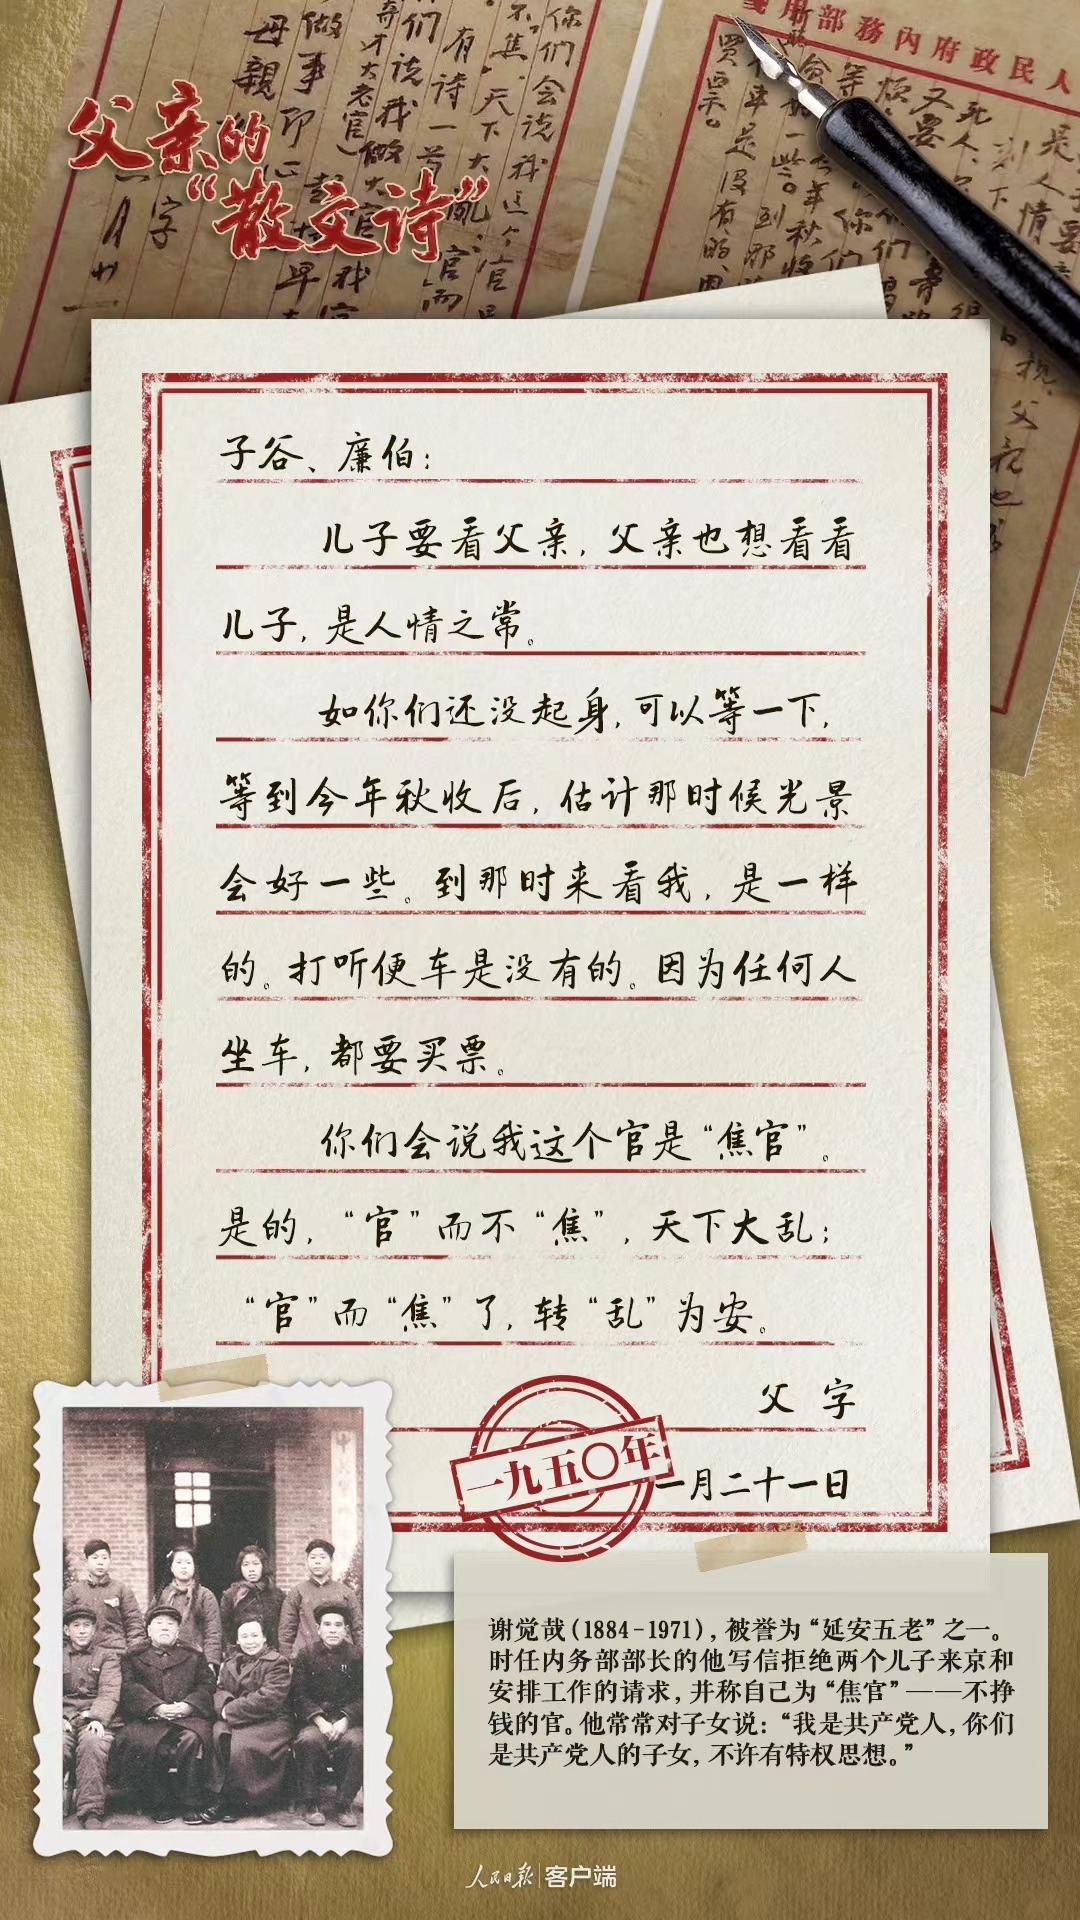 父亲的
“散文诗”
子谷、廉伯：
儿子要看父亲，父亲也想看看
儿子，是人情之常。
如你们还没起身，可以等一下，
等到今年秋收后，估计那时候光景
会好一些。到那时来看我，是一样
的。打听便车是没有的。因为任何人
坐车，都要买票。
你们会说我这个官是“焦官”。
是的，“官”而不“焦”，天下大乱；
“官”而“焦”了，转“乱”为安。
父 字
一九五〇年
一月二十一日
谢觉哉（1884-1971），被誉为“延安五老”之一。
时任内务部部长的他写信拒绝两个儿子来京和
安排工作的请求，并称自己为“焦官”——不挣
钱的官。他常常对子女说：“我是共产党人，你们
是共产党人的子女，不许有特权思想。”
人民日报 客户端